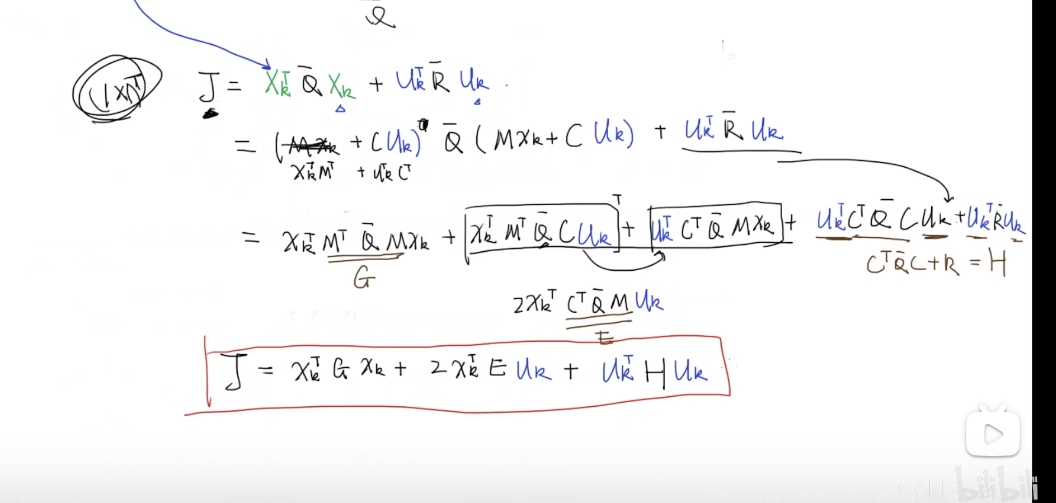 Q
(1×1) J = X_k^T Q̄ X_k + U_k^T R̄ U_k .
= (M x_k + C U_k)^T Q̄ (M x_k + C U_k) + U_k^T R̄ U_k
x_k^T M^T + U_k^T C^T
= x_k^T M^T Q̄ M x_k + x_k^T M^T Q̄ C U_k ^T + U_k^T C^T Q̄ M x_k + U_k^T C^T Q̄ C U_k + U_k^T R̄ U_k
G C^T Q̄ C + R = H
2x_k^T C^T Q̄ M U_k
E
J = x_k^T G x_k + 2x_k^T E U_k + U_k^T H U_k
bilibili